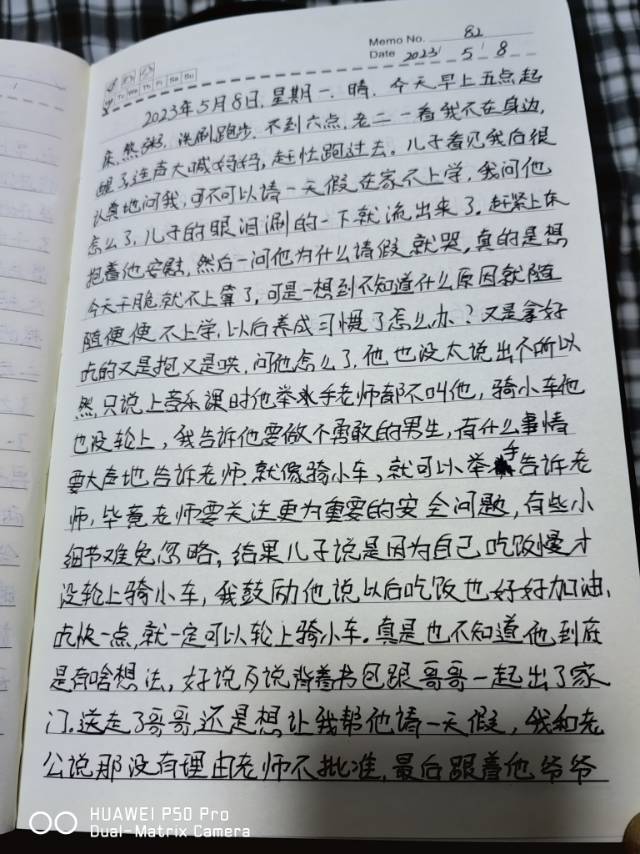 Memo No. 82
Date 2023 / 5 / 8
Tu We Th Fr Sa Su
2023年5月8日,星期一,晴,今天早上五点起
床,熬粥,洗刷跑步,不到六点,老二一看我不在身边,
醒了连声大喊妈妈,赶忙跑过去。儿子看见我后很
认真地问我,可不可以请一天假在家不上学,我问他
怎么了,儿子的眼泪涮的一下就流出来了。赶紧上床
抱着他安慰,然后一问他为什么请假就哭,真的是想
今天干脆就不上算了,可是一想到不知道什么原因就随
随便便不上学,以后养成习惯了怎么办?又是拿好
吃的又是抱又是哄,问他怎么了,他也没太说出个所以
然,只说上音乐课时他举手老师都不叫他,骑小车他
也没轮上,我告诉他要做个勇敢的男生,有什么事情
要大声地告诉老师,就像骑小车,就可以举手告诉老
师,毕竟老师要关注更为重要的安全问题,有些小
细节难免忽略,结果儿子说是因为自己吃饭慢才
没轮上骑小车,我鼓励他说以后吃饭也好好加油,
吃快一点,就一定可以轮上骑小车。真是也不知道他到底
是有啥想法,好说歹说背着书包跟哥哥一起出了家
门。送走了哥哥,还是想让我帮他请一天假,我和老
公说那没有理由老师不批准,最后跟着他爷爷
HUAWEI P50 Pro
Dual-Matrix Camera